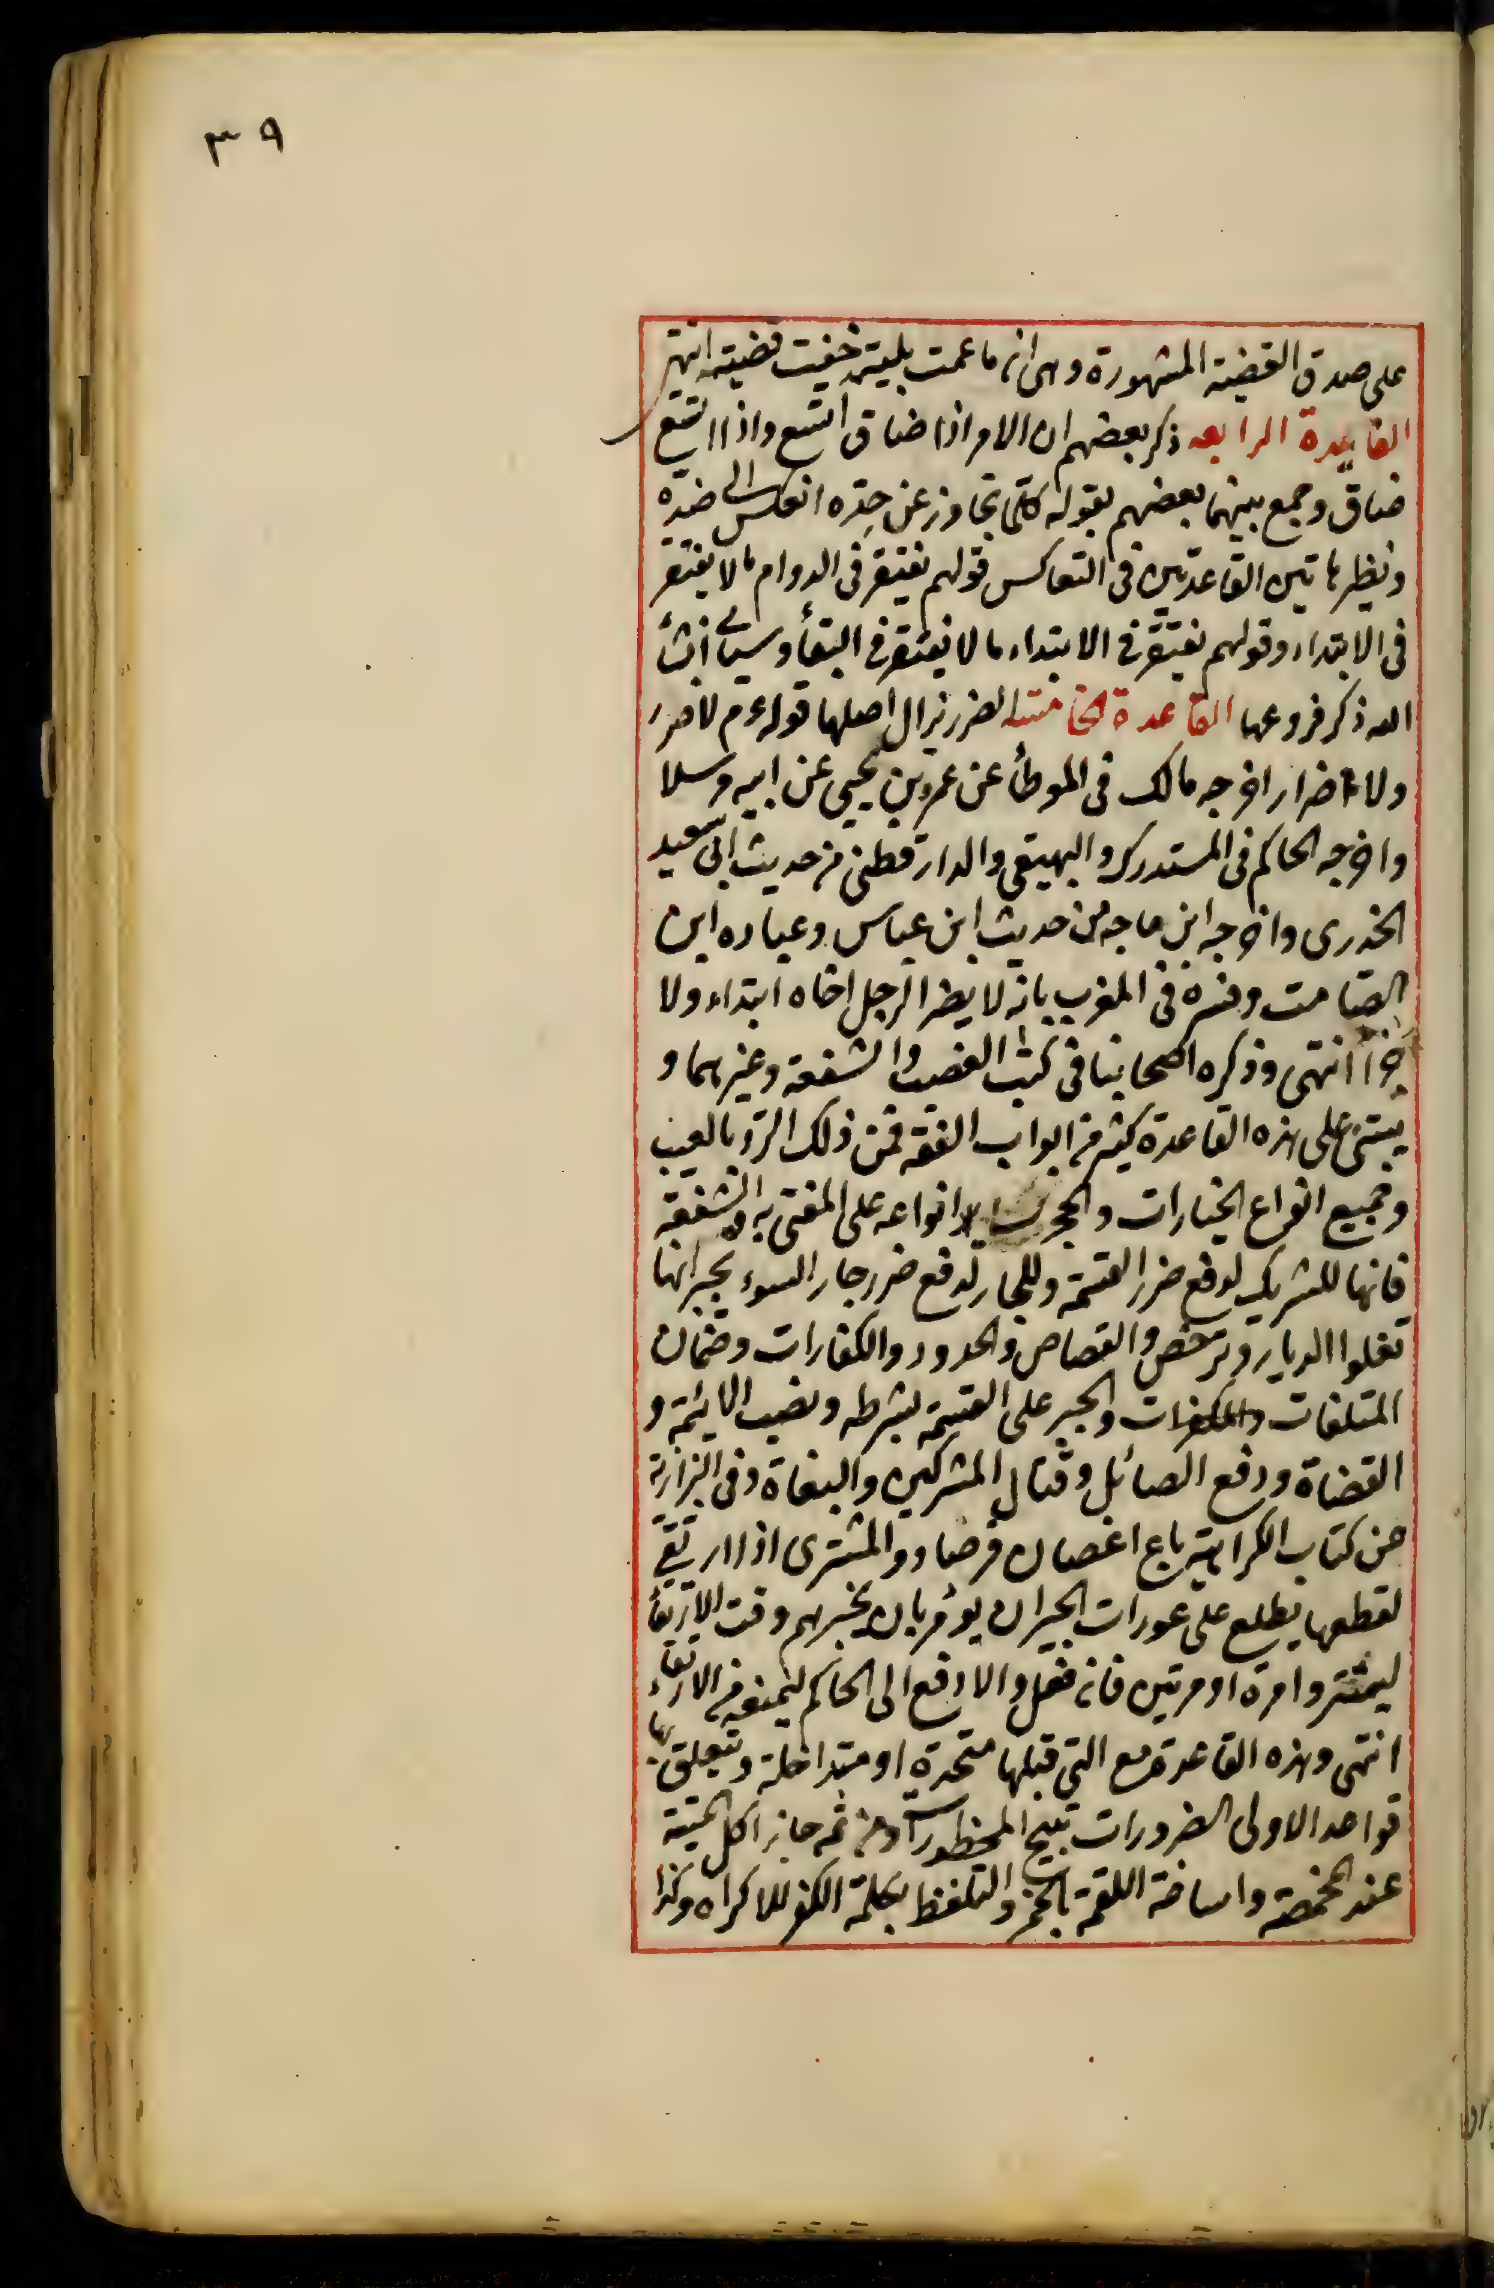 ٣٩
على صدق القضية المشهورة وهى انه ما عمت بليته خفت قضيته انتهى
الفايدة الرابعه ذكر بعضهم ان الامر اذا ضاق اتسع واذا اتسع
ضاق وجمع بينهما بعضهم بقوله كلما تجاوز عن حده انعكس الى ضده
ونظير هاتين القاعدتين فى التعاكس قولهم يغتفر فى الدوام ما لا يغتفر
فى الابتداء وقولهم يغتفر فى الابتداء ما لا يغتفر فى البقأ وسيأتى انشأ
الله ذكر فروعها القاعدة الخامسة الضرر يزال اصلها قوله عم لا ضرر
ولا ضرار اخرجه مالك فى الموطأ عن عمرو بن يحيى عن ابيه مرسلا
واخرجه الحاكم فى المستدرك والبهيقى والدار قطنى من حديث ابى سعيد
الخدرى واخرجه ابن ماجه من حديث ابن عباس وعباده ابن
الصامت وفسره فى المغرب بانه لا يضر الرجل اخاه ابتداء ولا
جزاأ انتهى وذكره اصحابنا فى كتب الغصب والشفعة وغيرهما و
يبتنى على هذه القاعدة كثير من ابواب الفقه فمن ذلك الرد بالعيب
وجميع انواع الخيارات والحجر بساير انواعه على المفتى به والشفعة
فانها للشريك لدفع ضرر القسمة وللجار لدفع ضرر جار السوء بجيرانها
تغلوا الديار وترخص والقصاص والحدود والكفارات وضمان
المتلفات والجبر على القسمة بشرطه ونصب الائمة و
القضاة ودفع الصائل وقتال المشركين والبغاة وفى البزازية
من كتاب الكراهية باع اغصان فرصاد والمشترى اذا ارتقى
لقطعها يطلع على عورات الجيران يؤمر بان يخبرهم وقت الارتقأ
ليستتروا مرة او مرتين فان فعل والا رفع الى الحاكم ليمنعه من الارتقاء
انتهى وهذه القاعدة مع التى قبلها متحدة او متداخلة وتتعلق بها
قواعد الاولى الضرورات تبيح المحظورات ومن ثم جاز اكل الميتة
عند المخمصة واساغة اللقمة بالخمر والتلفظ بكلمة الكفر للاكراه وكذا